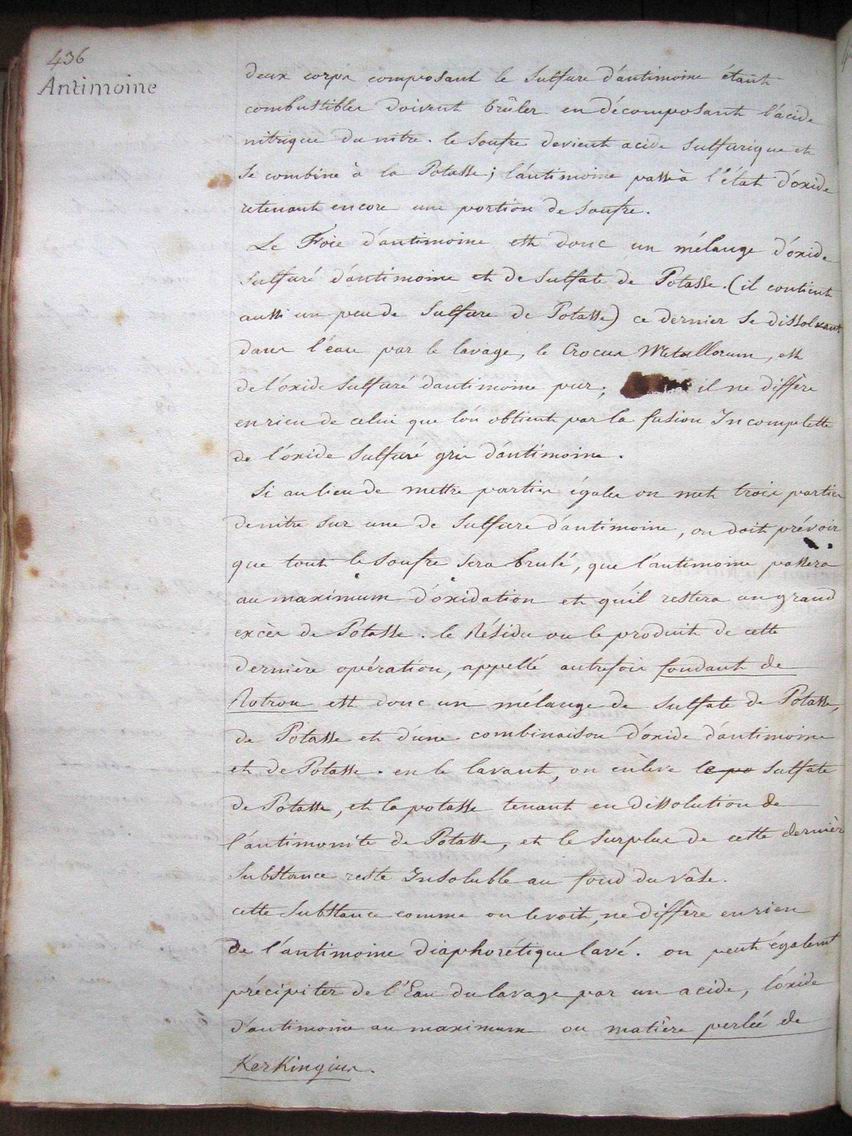 436
Antimoine
deux corps composant le Sulfure d'antimoine étant
combustibles doivent brûler en décomposant l'acide
nitrique du nitre. le Soufre devient acide Sulfurique et
Se combine à la Potasse; l'antimoine passe à l'état d'oxide
retenant encore une portion de Soufre.
Le Foie d'antimoine est donc un mélange d'oxide
Sulfuré d'antimoine et de Sulfate de Potasse. (il contient
aussi un peu de Sulfure de Potasse) ce dernier Se dissolvant
dans l'eau par le lavage, le Crocus Metallorum, est
de l'oxide Sulfuré d'antimoine pur; il ne diffère
en rien de celui que l'on obtient par la fusion Incomplette
de l'oxide Sulfuré gris d'antimoine.
Si au lieu de mettre parties égales on met trois parties
de nitre sur une de Sulfure d'antimoine, on doit prévoir
que tout le Soufre Sera brulé, que l'antimoine passera
au maximum d'oxidation et qu'il restera un grand
excès de Potasse. le Résidu ou le produit de cette
dernière opération, appellé autrefois fondant de
Rotrou est donc un mélange de Sulfate de Potasse,
de Potasse et d'une combinaison d'oxide d'antimoine
et de Potasse. en le lavant, on enlève le po Sulfate
de Potasse, et la potasse tenant en dissolution de
l'antimonite de Potasse, et le Surplus de cette dernière
Substance reste Insoluble au fond du vâse.
cette Substance comme on le voit, ne diffère en rien
De l'antimoine diaphorétique lavé. on peut également
précipiter de l'Eau du lavage par un acide, l'oxide
d'antimoine au maximum ou matière perlée de
KerKingius.